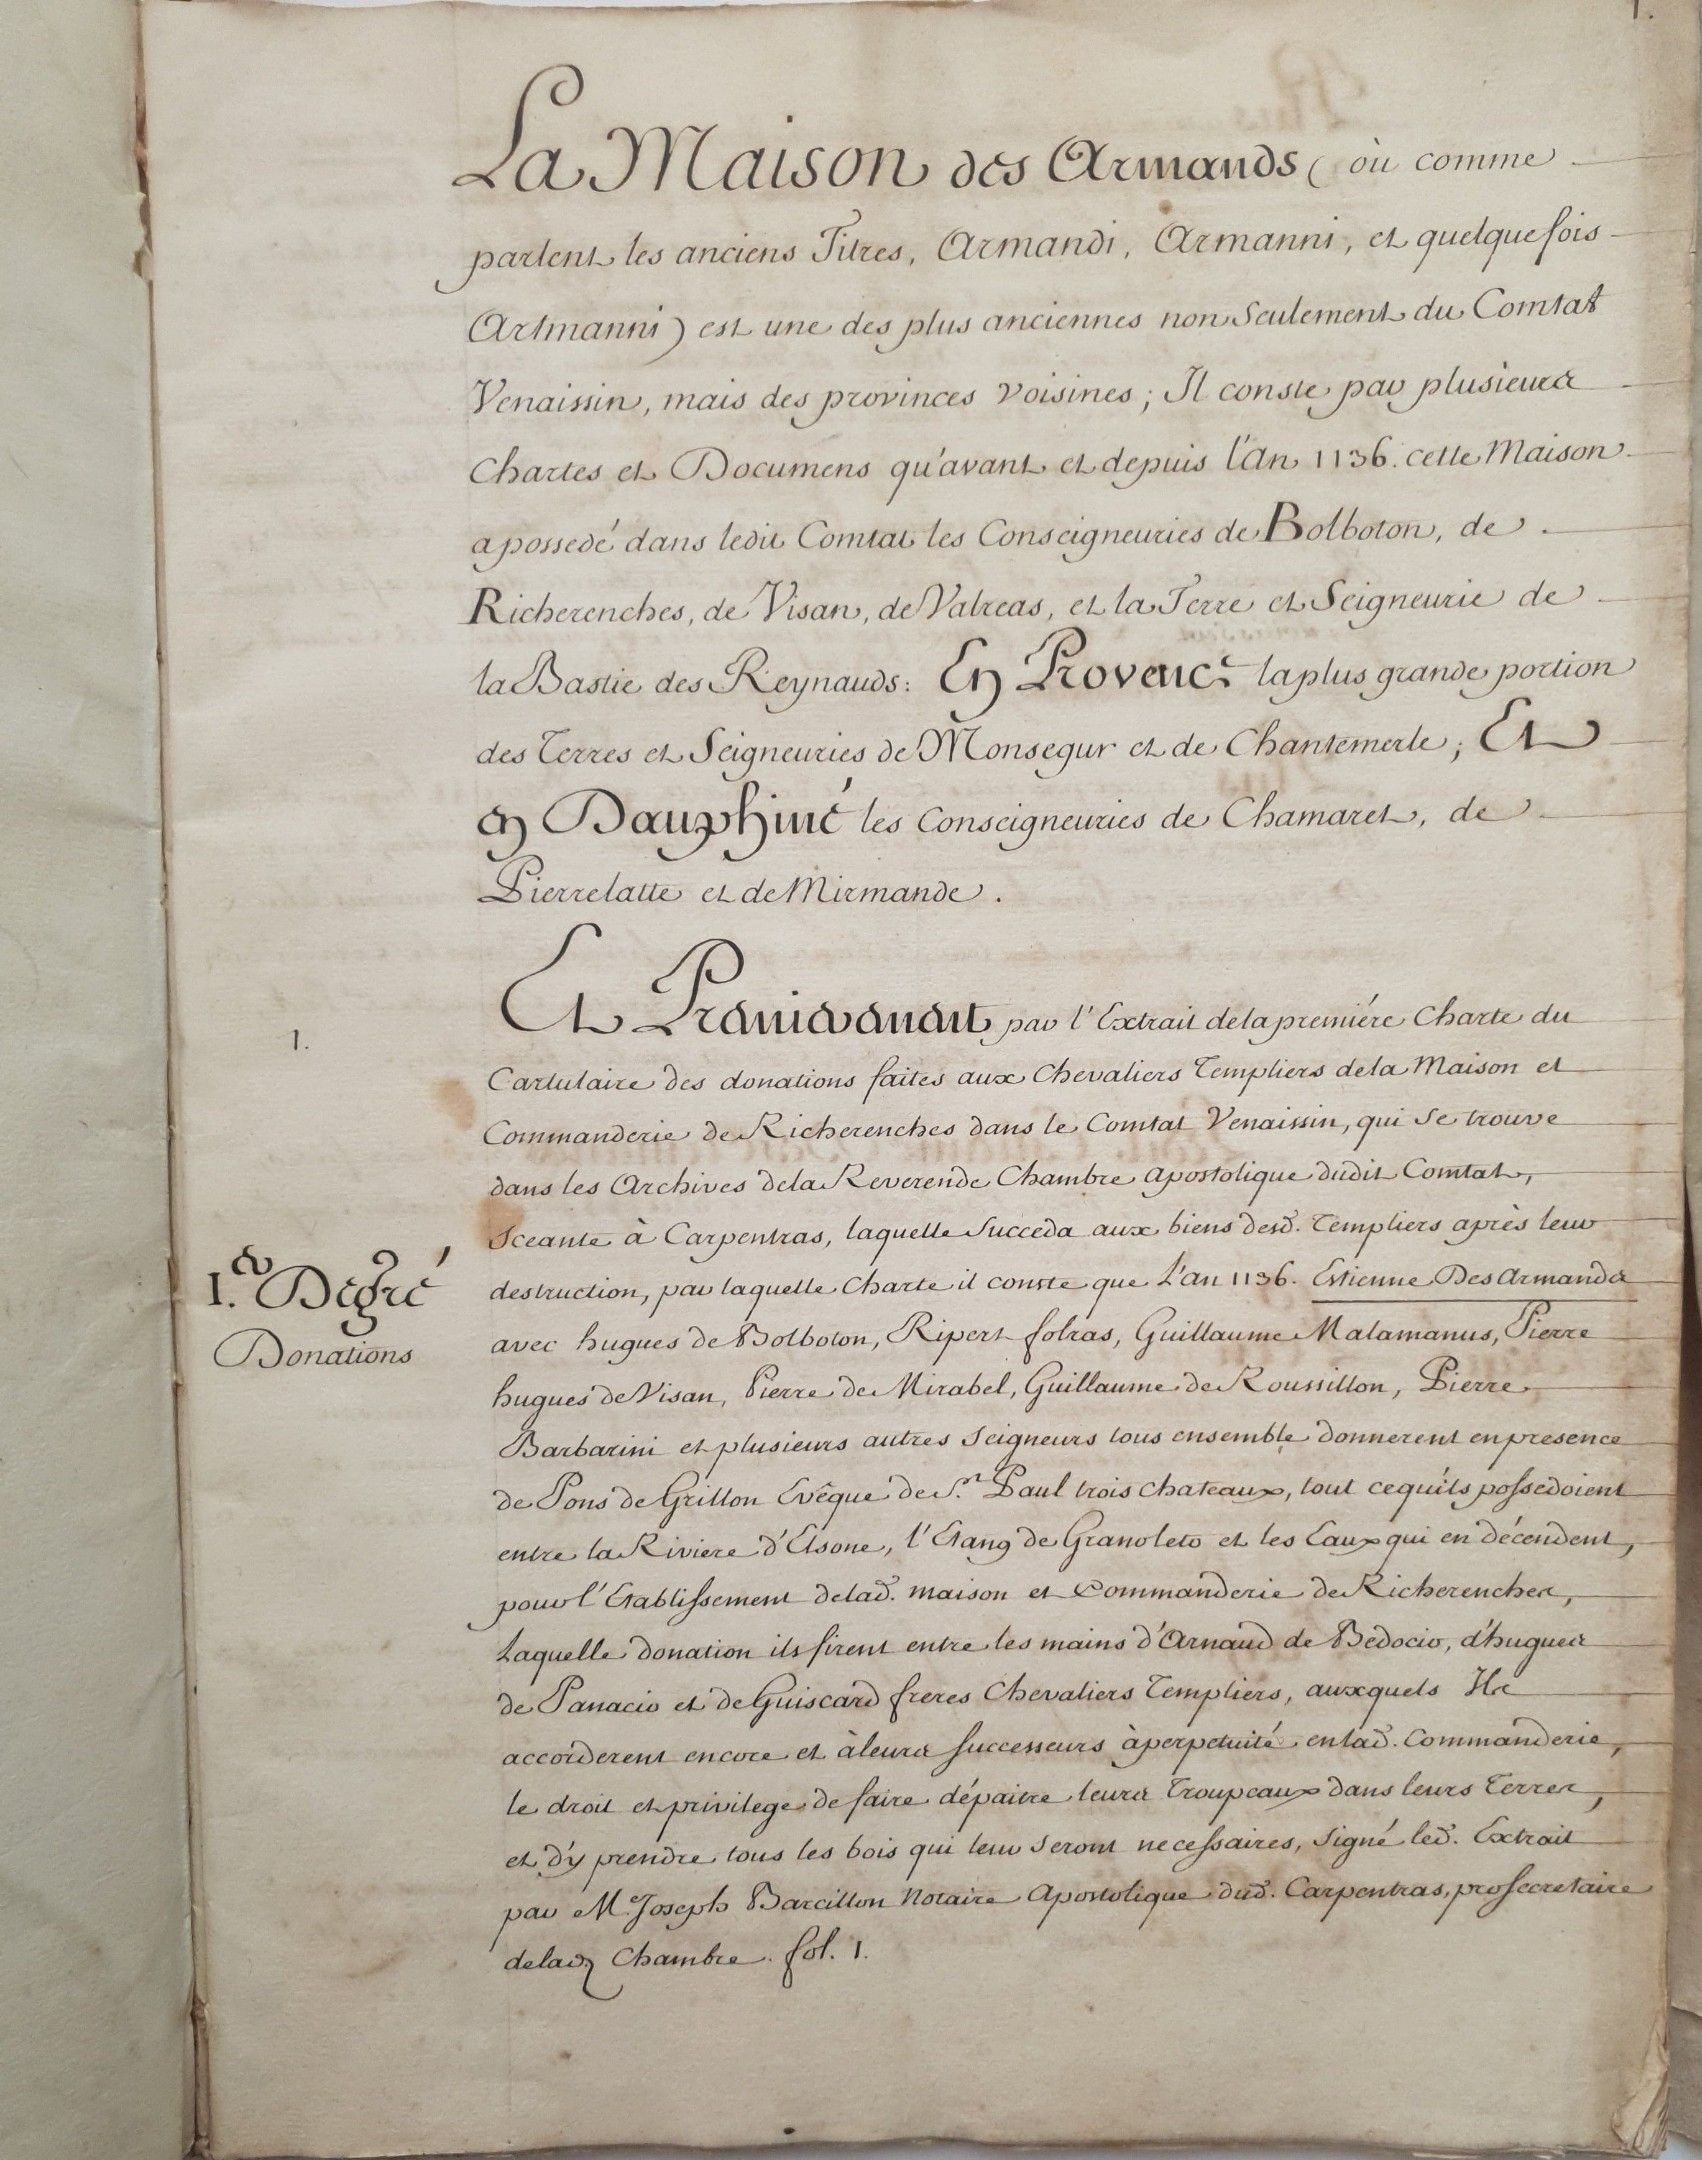 1.
La Maison des Armands ( où comme
parlent les anciens Titres, Armandi, Armanni, et quelquefois
Artmanni ) est une des plus anciennes non Seulement du Comtat
Venaissin, mais des provinces voisines ; Il conste par plusieurs
Chartes et Documens qu'avant et depuis l'an 1136. cette Maison
a possedé dans ledit Comtat les Conseigneuries de Bolboton, de
Richerenches, de Visan, de Valreas, et la Terre et Seigneurie de
la Bastie des Reynauds : En Provence la plus grande portion
des Terres et Seigneuries de Monsegur et de Chantemerle ; Et
en Dauphiné les Conseigneuries de Chamaret, de
Pierrelatte et de Mirmande .
1.
Et Premierement par l'Extrait de la premiére Charte du
Cartulaire des donations faites aux Chevaliers Templiers de la Maison et
Commanderie de Richerenches dans le Comtat Venaissin, qui se trouve
dans les Archives de la Reverende Chambre apostolique dudit Comtat,
Sceante à Carpentras, laquelle Succeda aux biens desd. Templiers après leur
I.er Degré
Donations
destruction, par laquelle Charte il conste que L'an 1136. Estienne Des Armands
avec hugues de Bolboton, Ripert folras, Guillaume Malamanus, Pierre
hugues de Visan, Pierre de Mirabel, Guillaume de Roussillon, Pierre
Barbarini et plusieurs autres Seigneurs tous ensemble donnerent en presence
de Pons de Grillon Evêque de S.t Paul trois chateaux, tout ce qu'ils possedoient
entre la Riviere d'Elsone, l'Etang de Granoleto et les Eaux qui en décendent,
pour l'Etablissement de lad. maison et Commanderie de Richerenches,
Laquelle donation ils firent entre les mains d'Arnaud de Bedocio, d'hugues
de Panacio et de Guiscard freres Chevaliers Templiers, auxquels Ils
accorderent encore et à leurs successeurs à perpetuité en lad. Commanderie,
le droit et privilege de faire dépaitre leurs Troupeaux dans leurs Terres,
et d'y prendre tous les bois qui leur seront necessaires, Signé led. Extrait
par M.e Joseph Barcillon Notaire Apostolique dud. Carpentras, prosecretaire
de lad. Chambre. fol. 1.